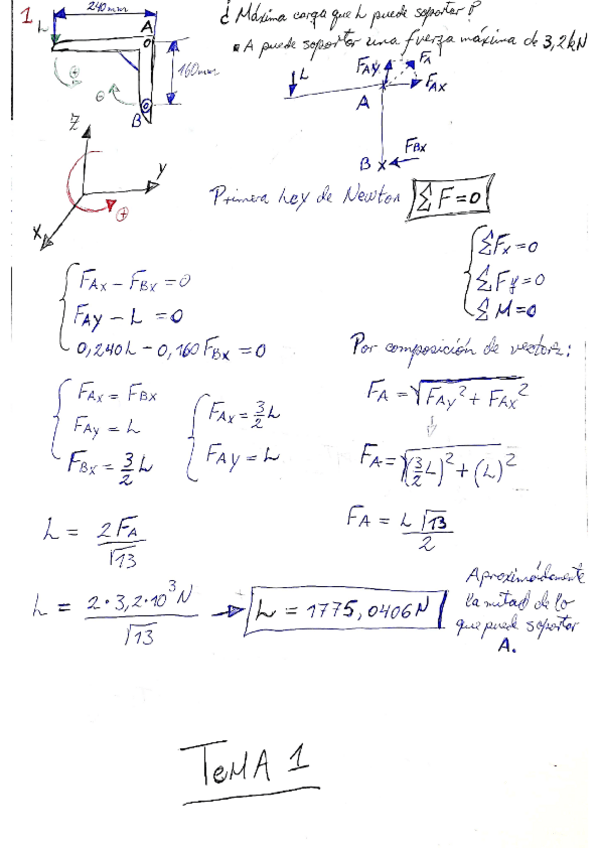 1
240mm
A
L
160mm
B
θ
Z
Y
X
¿ Máxima carga que L puede soportar ?
• A puede soportar una fuerza máxima de 3,2kN
L
FAY
FA
FAX
A
B
FBX
Primera Ley de Newton ΣF=0
ΣFx=0
ΣFy=0
ΣM=0
FAX - FBX = 0
FAY - L = 0
0,240L - 0,160FBX = 0
Por composición de vectores:
FAX = FBX
FAY = L
FBX = 3/2 L
FAX = 3/2 L
FAY = L
FA = √(FAY² + FAX²)
FA = √((3/2 L)² + (L)²)
FA = L√13 / 2
L = 2FA / √13
L = 2·3,2·10³N / √13 → L = 1775,0406N
Aproximadamente
la mitad de lo
que puede soportar
A.
TEMA 1